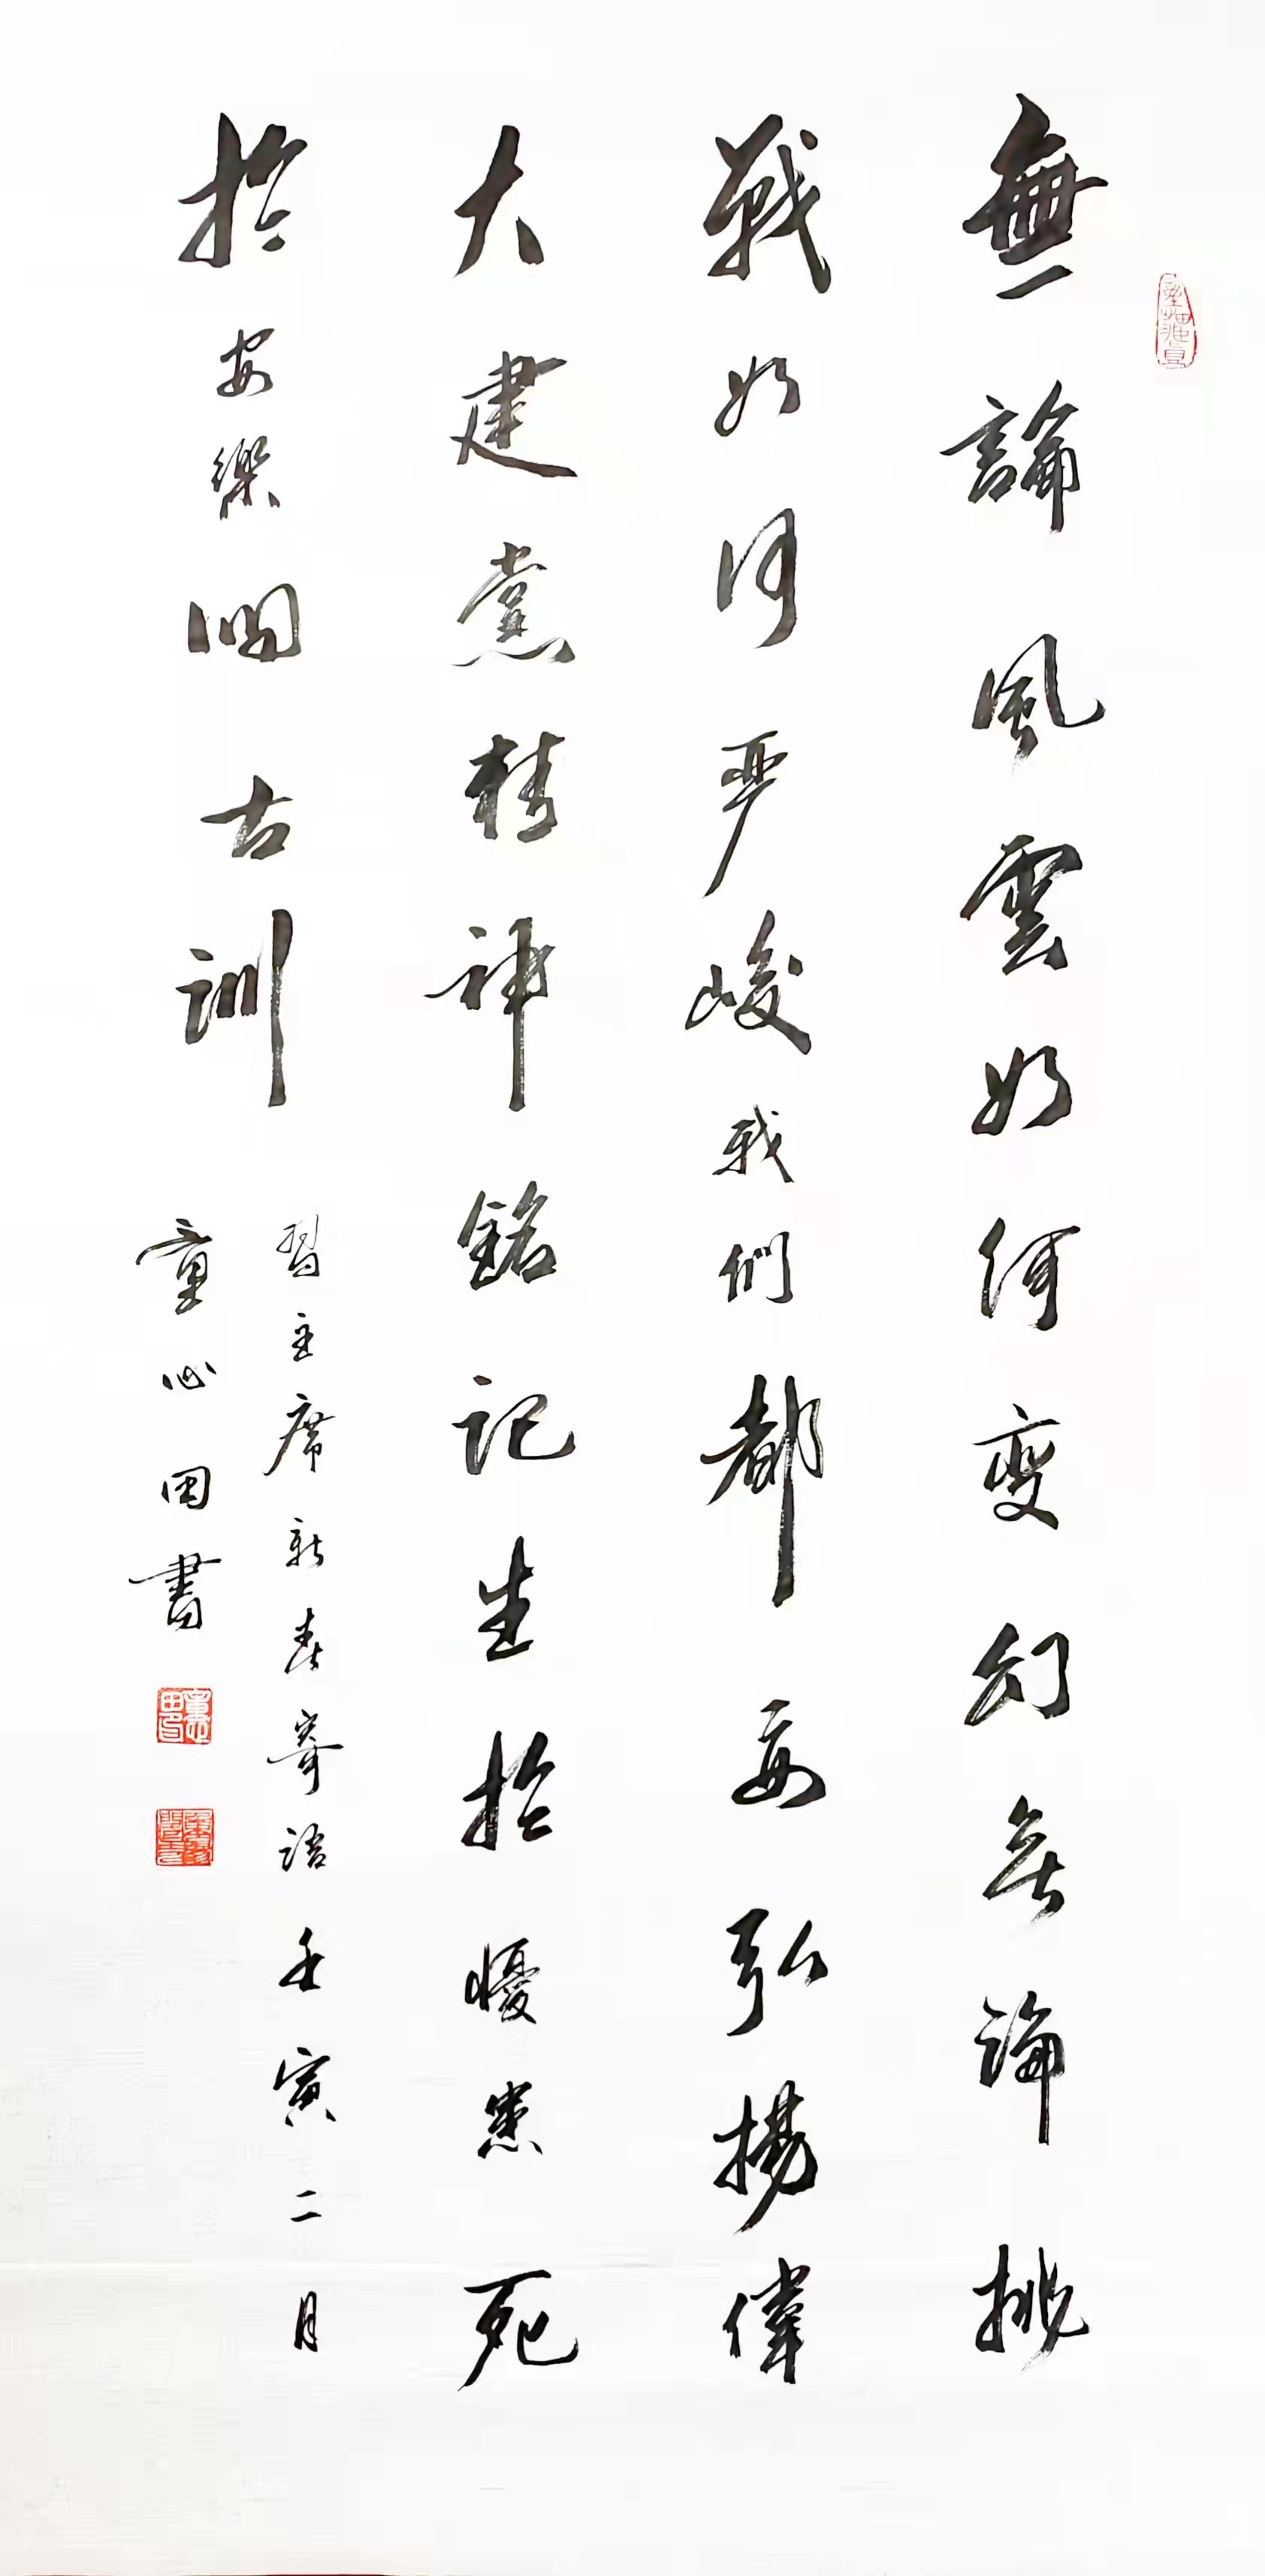 無論風雲如何变幻無論挑
戰如何严峻我們都要弘揚偉
大建黨精神銘記生於憂患死
於安樂的古訓
習主席新春寄語壬寅二月
童心田書